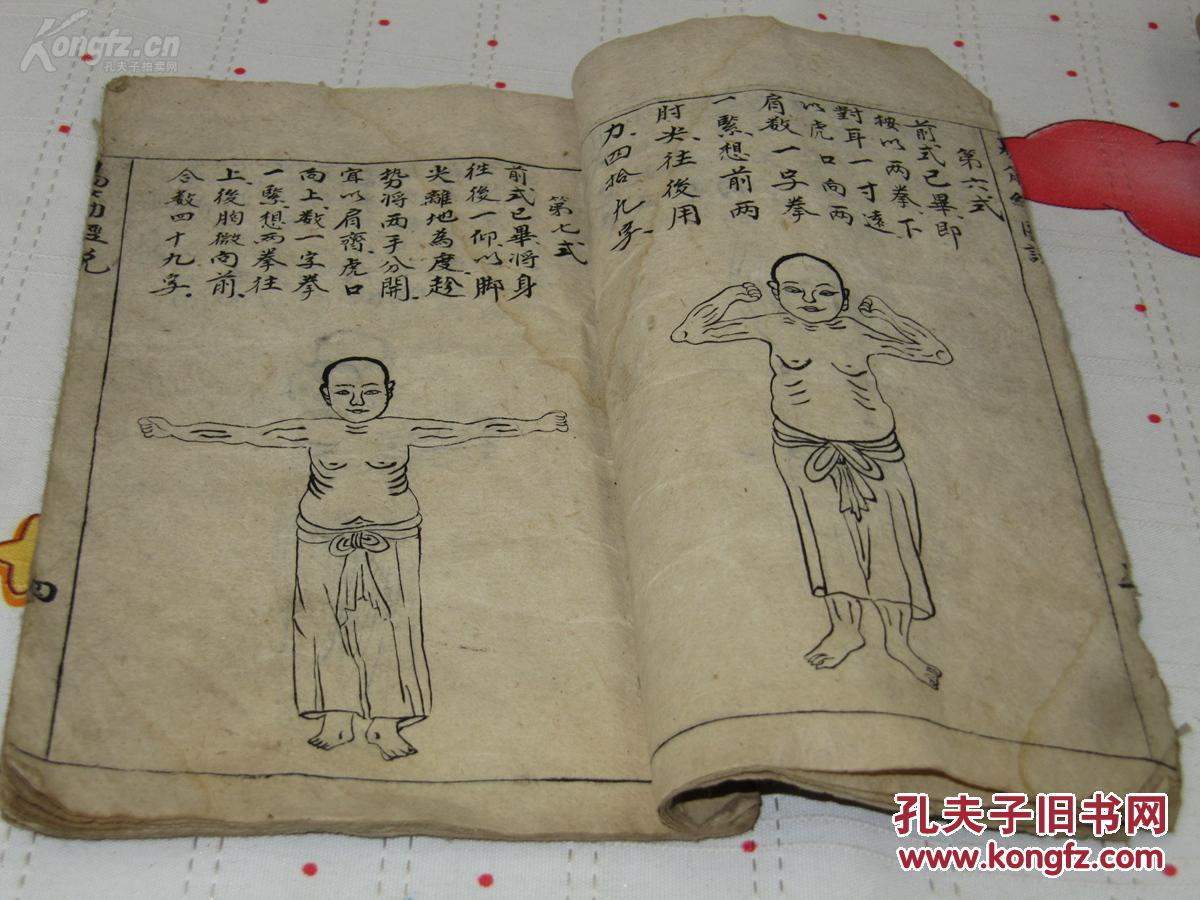 Kongfz.cn
孔夫子拍卖网
第六式
前式已畢、即
按以两拳、下
對耳一寸遠
以虎口向两
肩数一字拳
一緊想前两
肘尖往後用
力、四拾九字、
第七式
前式已畢、將身
往後一仰、以脚
尖離地為度趁
势將两手分開、
宜以肩齊、虎口
向上、数一字拳
一緊想两拳往
上、後胸微向前、
合数四十九字、
四
孔夫子旧书网
www.kongfz.com